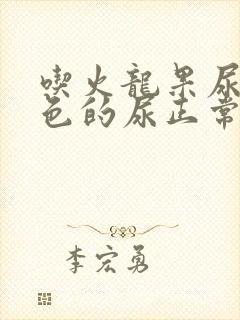 喫火龍果尿
色的尿正常
李宏勇